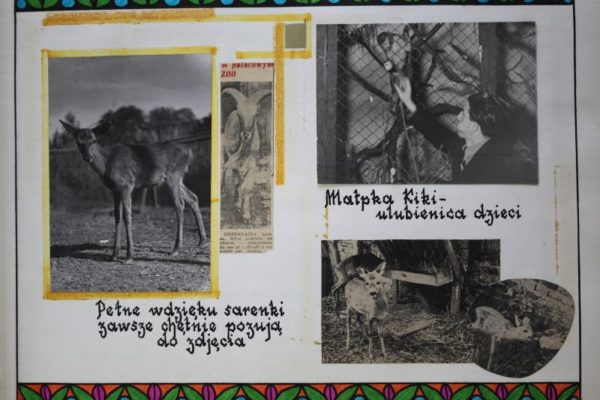 w pałacowym
ZOO
Małpka Kiki-
ulubienica dzieci
Pełne wdzięku sarenki
zawsze chętnie pozują
do zdjęcia